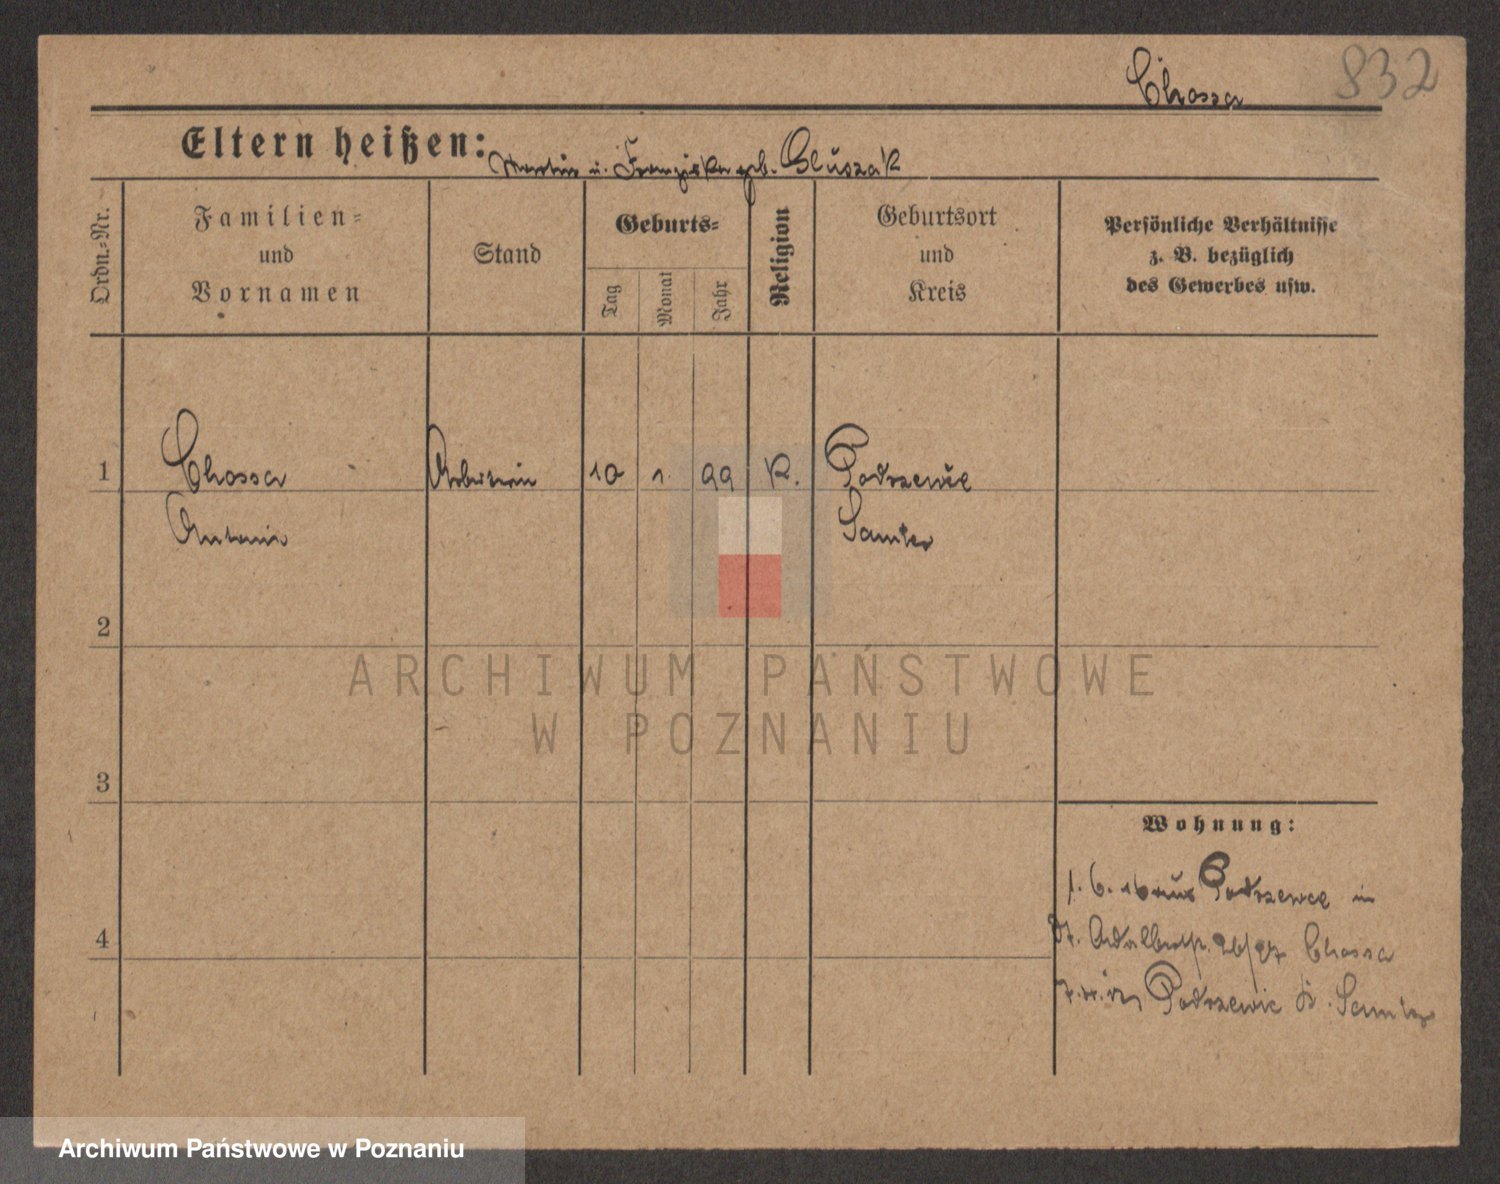 Chossa 832
Eltern heißen: Martin u. Franziska geb. Gluszak
Ordn.=Nr.
Familien=
und
Vornamen
Stand
Geburts=
Tag
Monat
Jahr
Religion
Geburtsort
und
Kreis
Persönliche Verhältnisse
z. B. bezüglich
des Gewerbes usw.
1 Chossa Arbeiterin 10 1. 99 K. Podrzewie
Antonie Samter
2
3
4
Wohnung:
1. 6. 16 aus Podrzewie in
St. Adalbertstr. 26/27 Chossa
Podrzewie Samter
ARCHIWUM PAŃSTWOWE
W POZNANIU
Archiwum Państwowe w Poznaniu